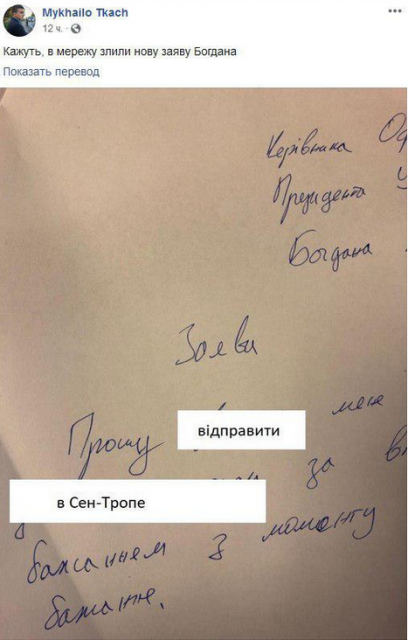 Mykhailo Tkach
12 ч.
Кажуть, в мережу злили нову заяву Богдана
Показать перевод
Керівника Оф
Президента У
Богдана
Заява
Прошу відправити мене
за в
в Сен-Тропе
бажанням з моменту
бажання.